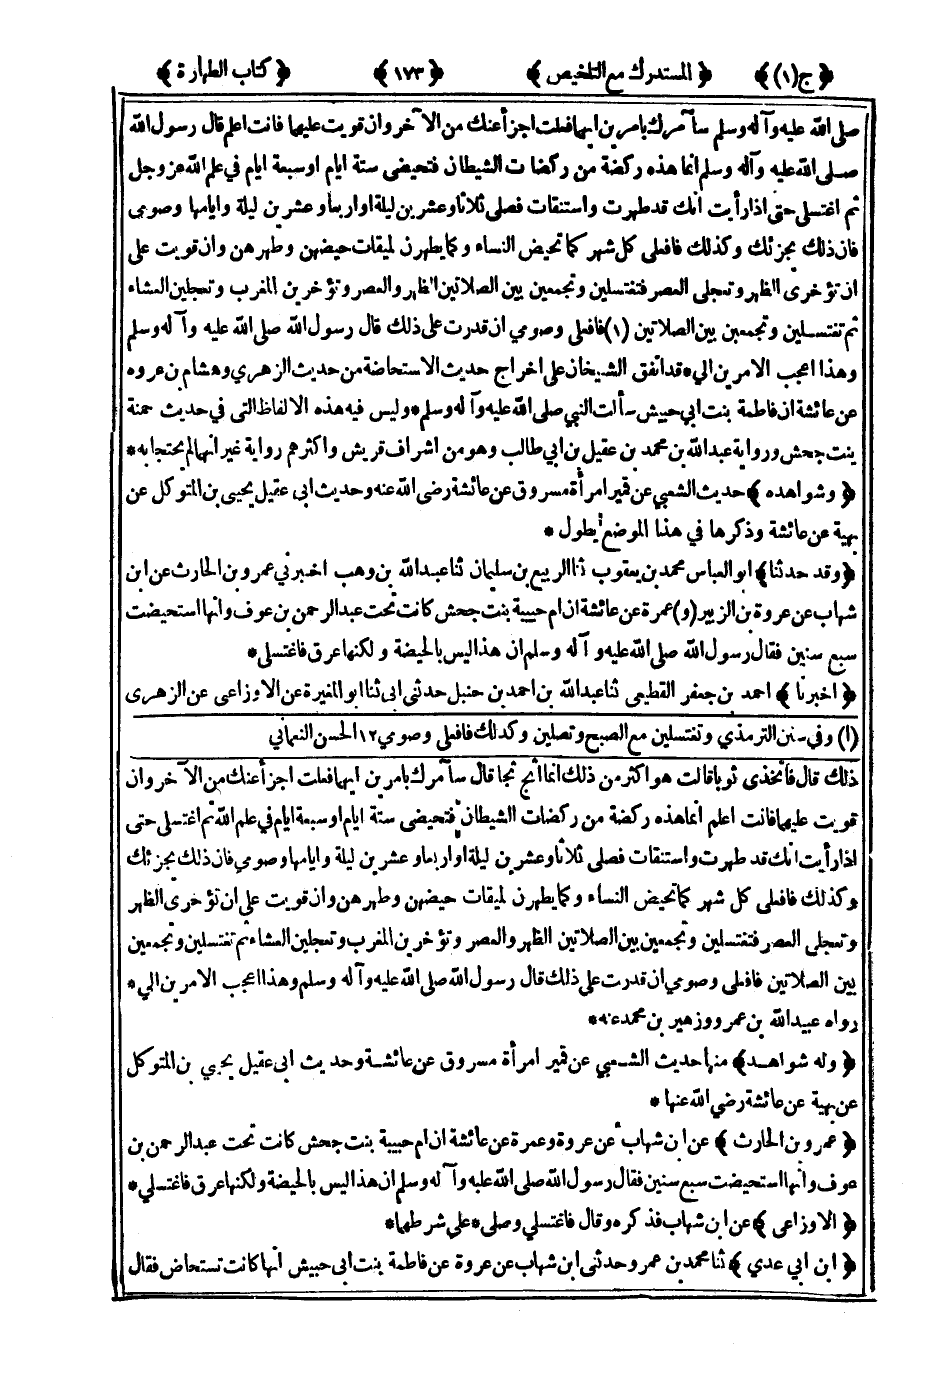 ﴿ ج(١) ﴾ ﴿ المستدرك مع التلخيص ﴾ ﴿ ١٧٣ ﴾ ﴿ كتاب الطهارة ﴾
صلى الله عليه وآله وسلم سآمرك بامرين ايهما فعلت اجزأ عنك من الآخر وان قويت عليهما فانت اعلم قال رسول الله
صلى الله عليه وآله وسلم انما هذه ركضة من ركضات الشيطان فتحيضى ستة ايام اوسبعة ايام في علم الله عز وجل
ثم اغتسلى حتى اذا رأيت انك قد طهرت واستنقات فصلى ثلاثا وعشرين ليلة اواربعا وعشرين ليلة وايامها وصومى
فان ذلك يجزئك وكذلك فافعلى كل شهر كما تحيض النساء وكما يطهرن لميقات حيضهن وطهرهن وان قويت على
ان تؤخرى الظهر وتعجلى العصر فتغتسلين وتجمعين بين الصلاتين الظهر والعصر وتؤخرين المغرب وتعجلين العشاء
ثم تغتسلين وتجمعين بين الصلاتين (١) فافعلى وصومي ان قدرت على ذلك قال رسول الله صلى الله عليه وآله وسلم
وهذا اعجب الامرين الي* قد اتفق الشيخان على اخراج حديث الاستحاضة من حديث الزهري وهشام بن عروه
عن عائشة ان فاطمة بنت ابي حبيش سألت النبي صلى الله عليه وآله وسلم* وليس فيه هذه الالفاظ التى في حديث حمنة
بنت جحش ورواية عبدالله بن محمد بن عقيل بن ابي طالب وهو من اشراف قريش واكثرهم رواية غير انهما لم يحتجا به*
﴿ وشواهده ﴾ حديث الشعبي عن قمير امرأة مسروق عن عائشة رضى الله عنه وحديث ابى عقيل يحيى بن المتوكل عن
بهية عن عائشة وذكرها في هذا الموضع يطول *
﴿ وقد حدثنا ﴾ ابو العباس محمد بن يعقوب ثنا الربيع بن سليمان ثنا عبدالله بن وهب اخبرني عمرو بن الحارث عن ابن
شهاب عن عروة بن الزبير (و) عمرة عن عائشة ان ام حبيبة بنت جحش كانت تحت عبدالرحمن بن عوف وانها استحيضت
سبع سنين فقال رسول الله صلى الله عليه وآله وسلم ان هذا ليس بالحيضة ولكنها عرق فاغتسلى*
﴿ اخبرنا ﴾ احمد بن جعفر القطيعى ثنا عبدالله بن احمد بن حنبل حدثنى ابى ثنا ابو المغيرة عن الاوزاعى عن الزهرى
(١) وفي سنن الترمذي وتغتسلين مع الصبح وتصلين وكذلك فافعلى وصومي ١٢ الحسن النعماني
ذلك قال فاتخذى ثوبا قالت هو اكثر من ذلك انما اثج ثجا قال سآمرك بامرين ايهما فعلت اجزأ عنك من الآخر وان
قويت عليهما فانت اعلم انما هذه ركضة من ركضات الشيطان فتحيضى ستة ايام اوسبعة ايام في علم الله ثم اغتسلى حتى
اذا رأيت انك قد طهرت واستنقات فصلى ثلاثا وعشرين ليلة اواربعا وعشرين ليلة وايامها وصومي فان ذلك يجزئك
وكذلك فافعلى كل شهر كما تحيض النساء وكما يطهرن لميقات حيضهن وطهرهن وان قويت على ان تؤخرى الظهر
وتعجلى العصر فتغتسلين وتجمعين بين الصلاتين الظهر والعصر وتؤخرين المغرب وتعجلين العشاء ثم تغتسلين وتجمعين
بين الصلاتين فافعلى وصومي ان قدرت على ذلك قال رسول الله صلى الله عليه وآله وسلم وهذا اعجب الامرين الي*
رواه عبيدالله بن عمرو وزهير بن محمد عنه*
﴿ وله شواهد ﴾ منها حديث الشعبي عن قمير امرأة مسروق عن عائشة وحديث ابى عقيل يحيى بن المتوكل
عن بهية عن عائشة رضي الله عنها *
﴿ عمرو بن الحارث ﴾ عن ابن شهاب عن عروة وعمرة عن عائشة ان ام حبيبة بنت جحش كانت تحت عبدالرحمن بن
عوف وانها استحيضت سبع سنين فقال رسول الله صلى الله عليه وآله وسلم ان هذا ليس بالحيضة ولكنها عرق فاغتسلي*
﴿ الاوزاعى ﴾ عن ابن شهاب فذكره وقال فاغتسلي وصلى* على شرطهما*
﴿ ابن ابي عدي ﴾ ثنا محمد بن عمرو حدثنى ابن شهاب عن عروة عن فاطمة بنت ابى حبيش انها كانت تستحاض فقال